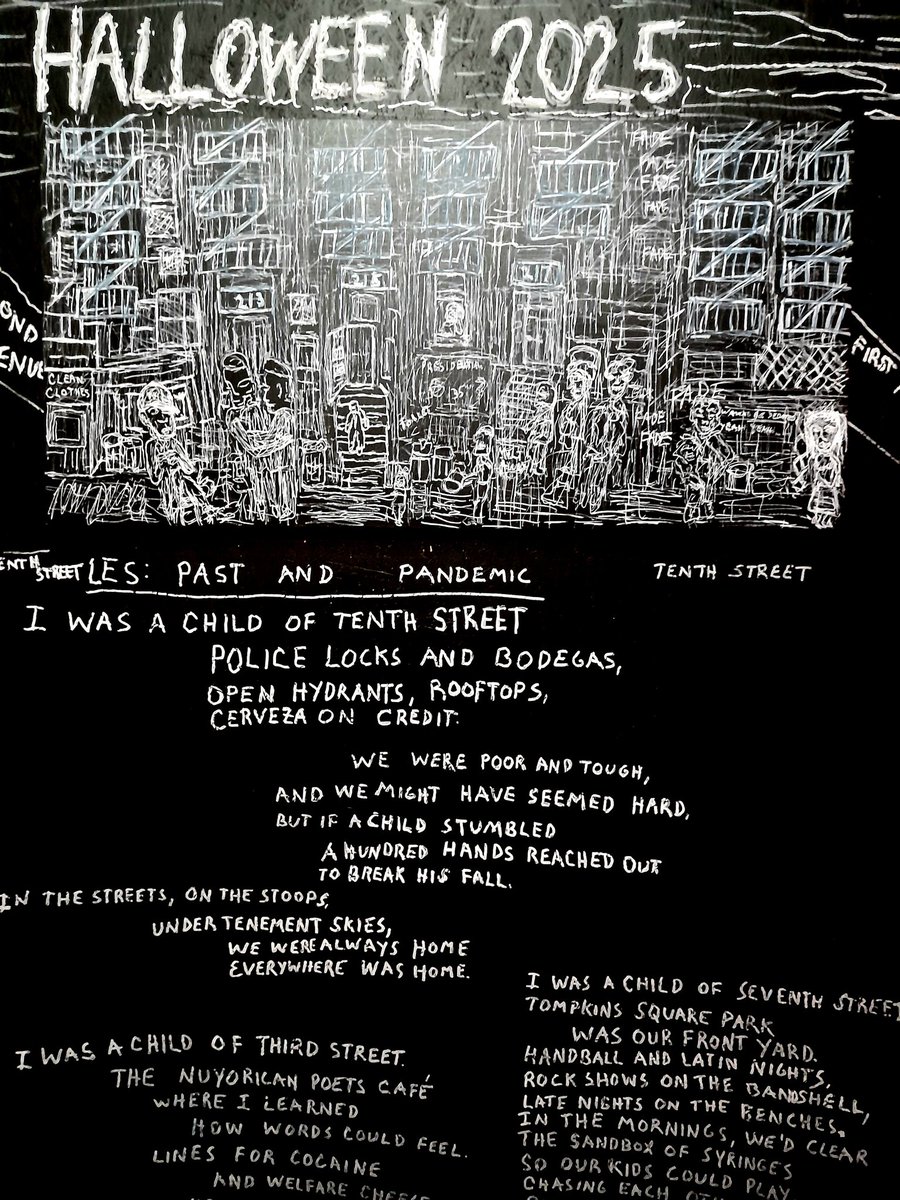 HALLOWEEN 2025
FADE
FADE
FADE
FADE
FADE
213
CLEAN
CLOTHES
PRESIDENTIAL
35
FADE
FADE
FIRST
TENTH
STREET
LES: PAST AND PANDEMIC
TENTH STREET
I WAS A CHILD OF TENTH STREET
POLICE LOCKS AND BODEGAS,
OPEN HYDRANTS, ROOFTOPS,
CERVEZA ON CREDIT.
WE WERE POOR AND TOUGH,
AND WE MIGHT HAVE SEEMED HARD,
BUT IF A CHILD STUMBLED
A HUNDRED HANDS REACHED OUT
TO BREAK HIS FALL.
IN THE STREETS, ON THE STOOPS,
UNDER TENEMENT SKIES,
WE WERE ALWAYS HOME
EVERYWHERE WAS HOME.
I WAS A CHILD OF THIRD STREET.
THE NUYORICAN POETS CAFÉ
WHERE I LEARNED
HOW WORDS COULD FEEL.
LINES FOR COCAINE
AND WELFARE CHEESE
I WAS A CHILD OF SEVENTH STREET
TOMPKINS SQUARE PARK
WAS OUR FRONT YARD.
HANDBALL AND LATIN NIGHTS,
ROCK SHOWS ON THE BANDSHELL,
LATE NIGHTS ON THE BENCHES.
IN THE MORNINGS, WE'D CLEAR
THE SANDBOX OF SYRINGES
SO OUR KIDS COULD PLAY
CHASING EACH